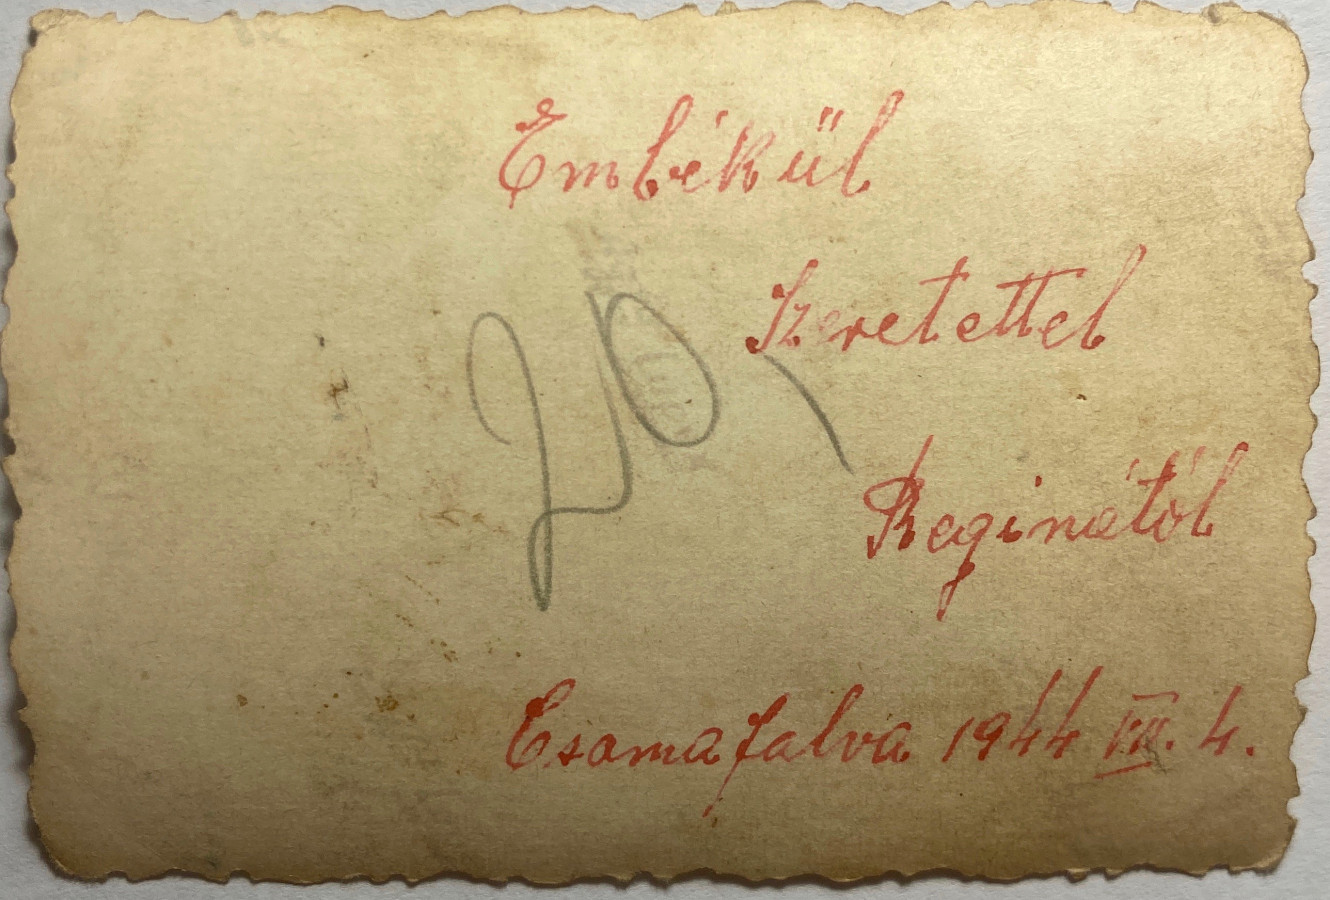 Emlékül
Szeretettel
20,
Reginától
Csomafalva 1944 VII. 4.